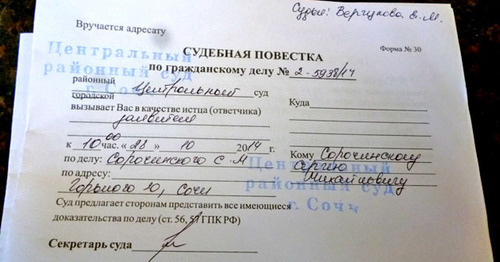 Судья: Вергунова, Е.М.
Вручается адресату
Форма № 30
Центральный
районный суд
г. Сочи
СУДЕБНАЯ ПОВЕСТКА
по гражданскому делу № 2-5938/14
районный
городской Центральный суд
вызывает Вас в качестве истца (ответчика)
заявителя
к 10 00 час. «28» 10 2014 г.
по делу: Сорочинского С. М
по адресу:
Горького 20, Сочи
Куда
Кому Сорочинскому
Сергею
Михайловичу
Центральный
районный суд
г. Сочи
Суд предлагает сторонам представить все имеющиеся
доказательства по делу (ст. 56, 57 ГПК РФ)
Секретарь суда